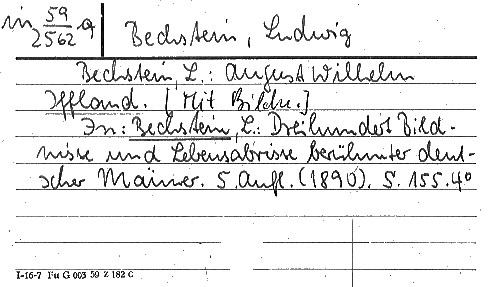 in 59/2562 a
Bechstein, Ludwig
Bechstein, L.: August Wilhelm
Iffland. [Mit Bildn.]
In: Bechstein, L.: Dreihundert Bild-
nisse und Lebensabrisse berühmter deut-
scher Männer. 5. Aufl. (1890). S. 155. 4°
I-16-7 Fu G 003 59 Z 182 C